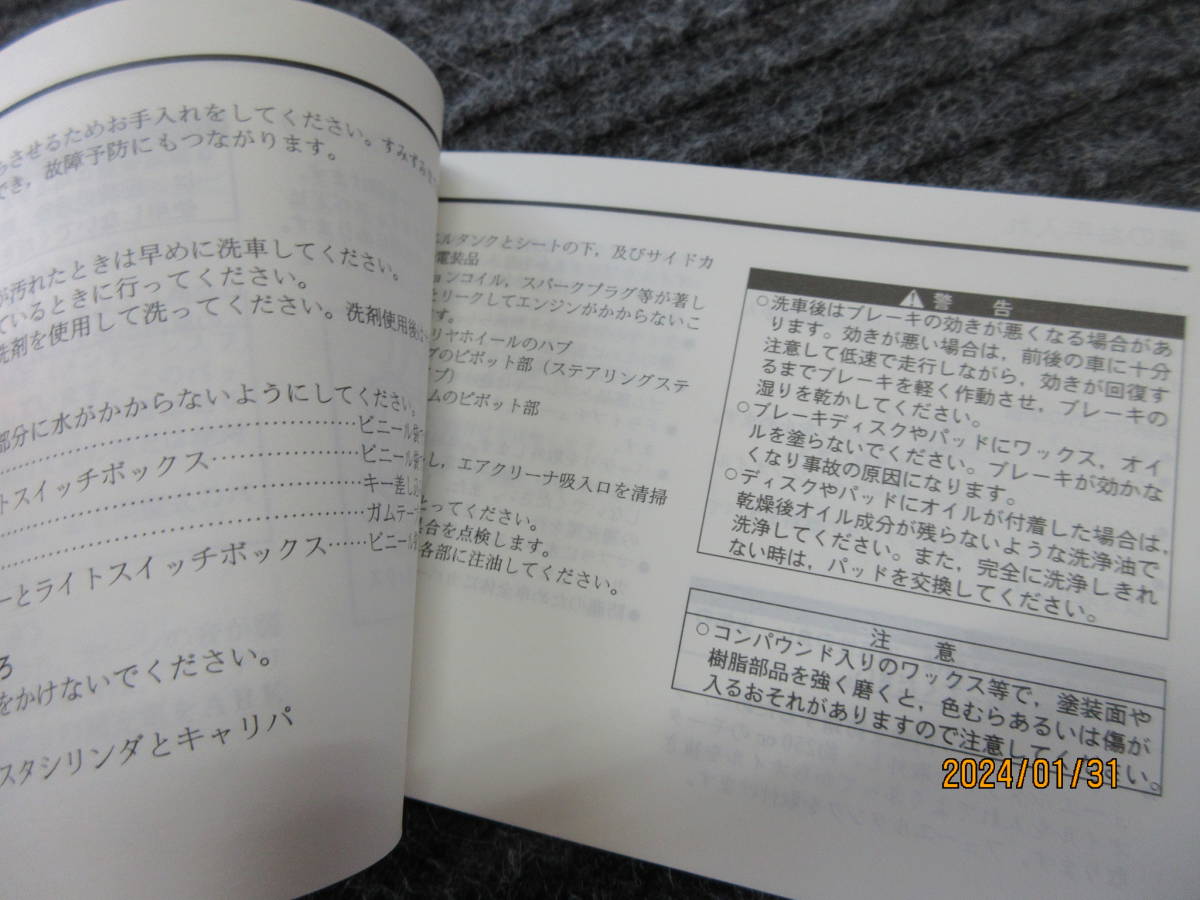 らさせるためお手入れをしてください。すみずみま
でき，故障予防にもつながります。
が汚れたときは早めに洗車してください。
ているときに行ってください。
洗剤を使用して洗ってください。洗剤使用後
部分に水がかからないようにしてください。
ビニール袋
トスイッチボックス………………ビニール袋
キー差し込
ガムテー
ーとライトスイッチボックス……ビニール
ろ
をかけないでください。
スタシリンダとキャリパ
ルタンクとシートの下，及びサイドカ
電装品
ョンコイル，スパークプラグ等が著し
とリークしてエンジンがかからないこ
す。
リヤホイールのハブ
グのピボット部（ステアリングステ
ブ）
ムのピボット部
し，エアクリーナ吸入口を清掃
とってください。
具合を点検します。
各部に注油してください。
警 告
○洗車後はブレーキの効きが悪くなる場合があ
ります。効きが悪い場合は，前後の車に十分
注意して低速で走行しながら，効きが回復す
るまでブレーキを軽く作動させ，ブレーキの
湿りを乾かしてください。
○ブレーキディスクやパッドにワックス，オイ
ルを塗らないでください。ブレーキが効かな
くなり事故の原因になります。
○ディスクやパッドにオイルが付着した場合は，
乾燥後オイル成分が残らないような洗浄油で
洗浄してください。また，完全に洗浄しきれ
ない時は，パッドを交換してください。
注 意
○コンパウンド入りのワックス等で，塗装面や
樹脂部品を強く磨くと，色むらあるいは傷が
入るおそれがありますので注意してください。
2024/01/31